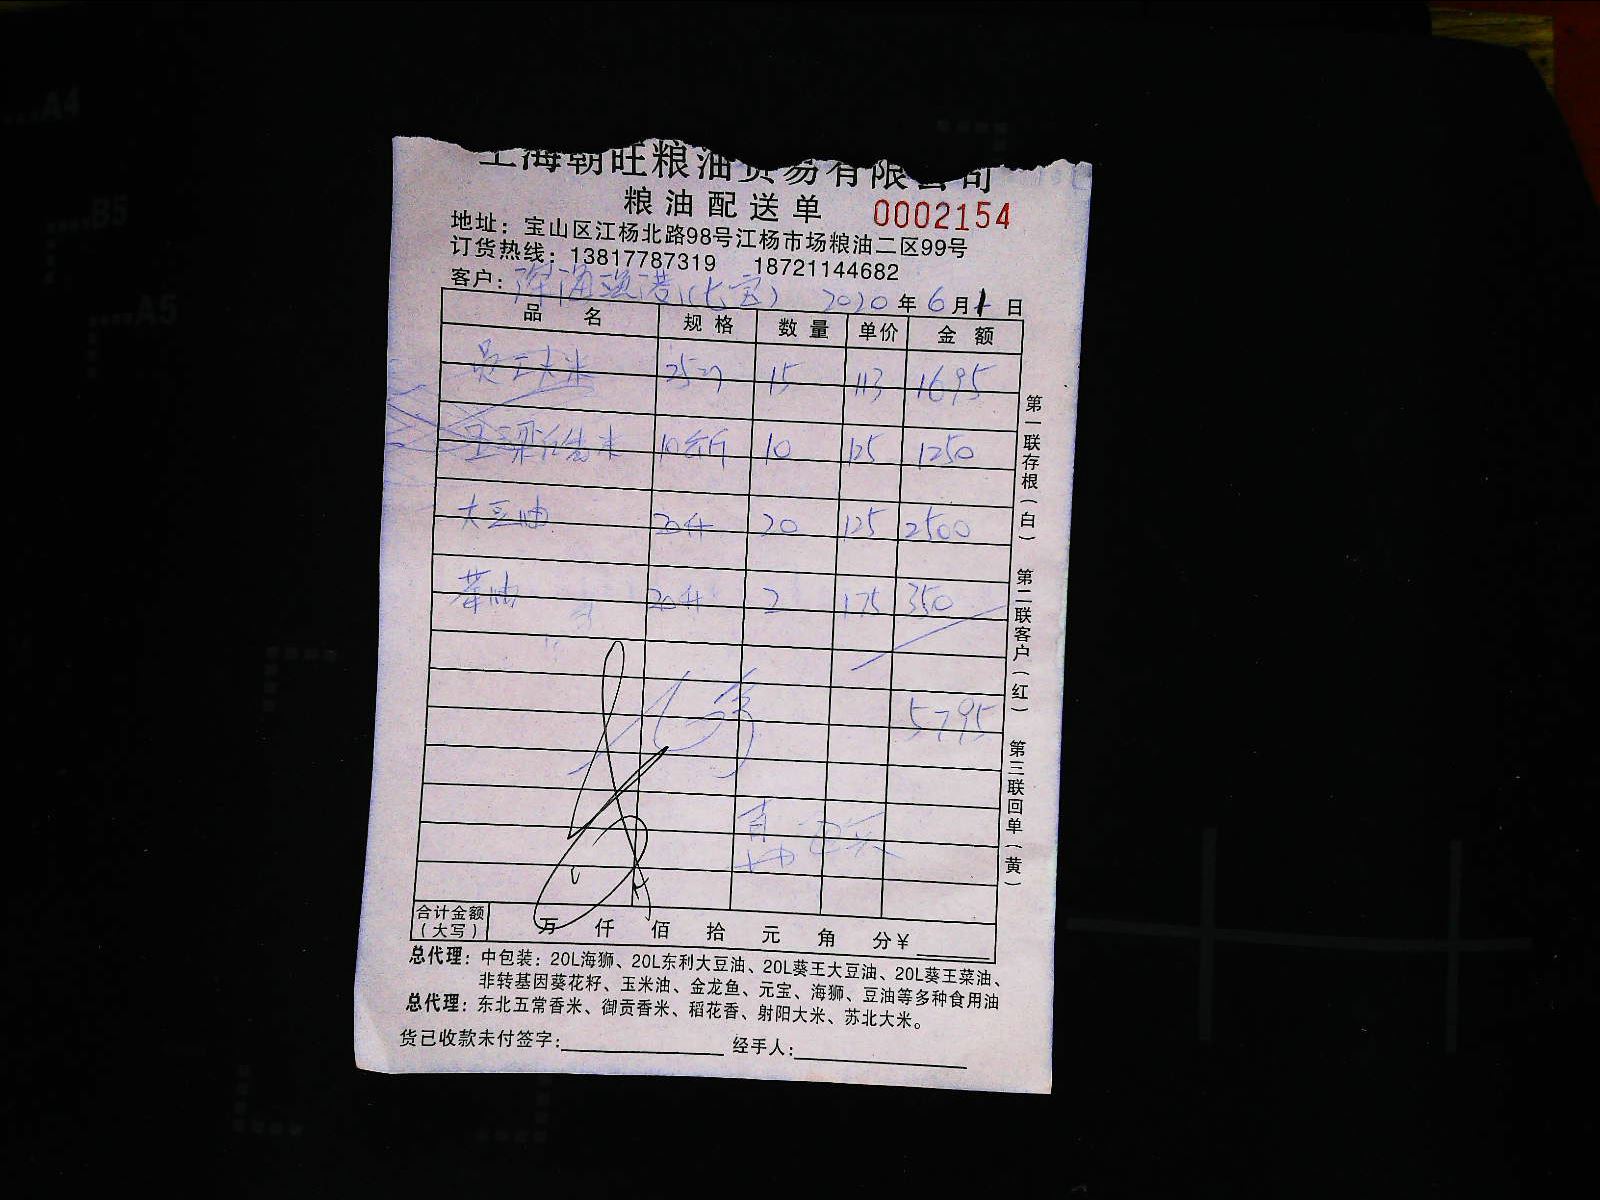 上海朝旺粮油贸易有限公司
粮油配送单 0002154
地址：宝山区江杨北路98号江杨市场粮油二区99号
订货热线：13817787319 18721144682
客户：深海渔港(长宝) 2020年6月1日
品名 规格 数量 单价 金额
员工大米 25 15 113 1695
10公斤 10 125 1250
大豆油 20升 20 125 2500
菜油 20升 2 175 350
5795
合计金额（大写） 万 仟 佰 拾 元 角 分￥
总代理：中包装：20L海狮、20L东利大豆油、20L葵王大豆油、20L葵王菜油、
非转基因葵花籽、玉米油、金龙鱼、元宝、海狮、豆油等多种食用油
总代理：东北五常香米、御贡香米、稻花香、射阳大米、苏北大米。
货已收款未付签字： 经手人：
第一联存根（白） 第二联客户（红） 第三联回单（黄）
A4
B5
A5